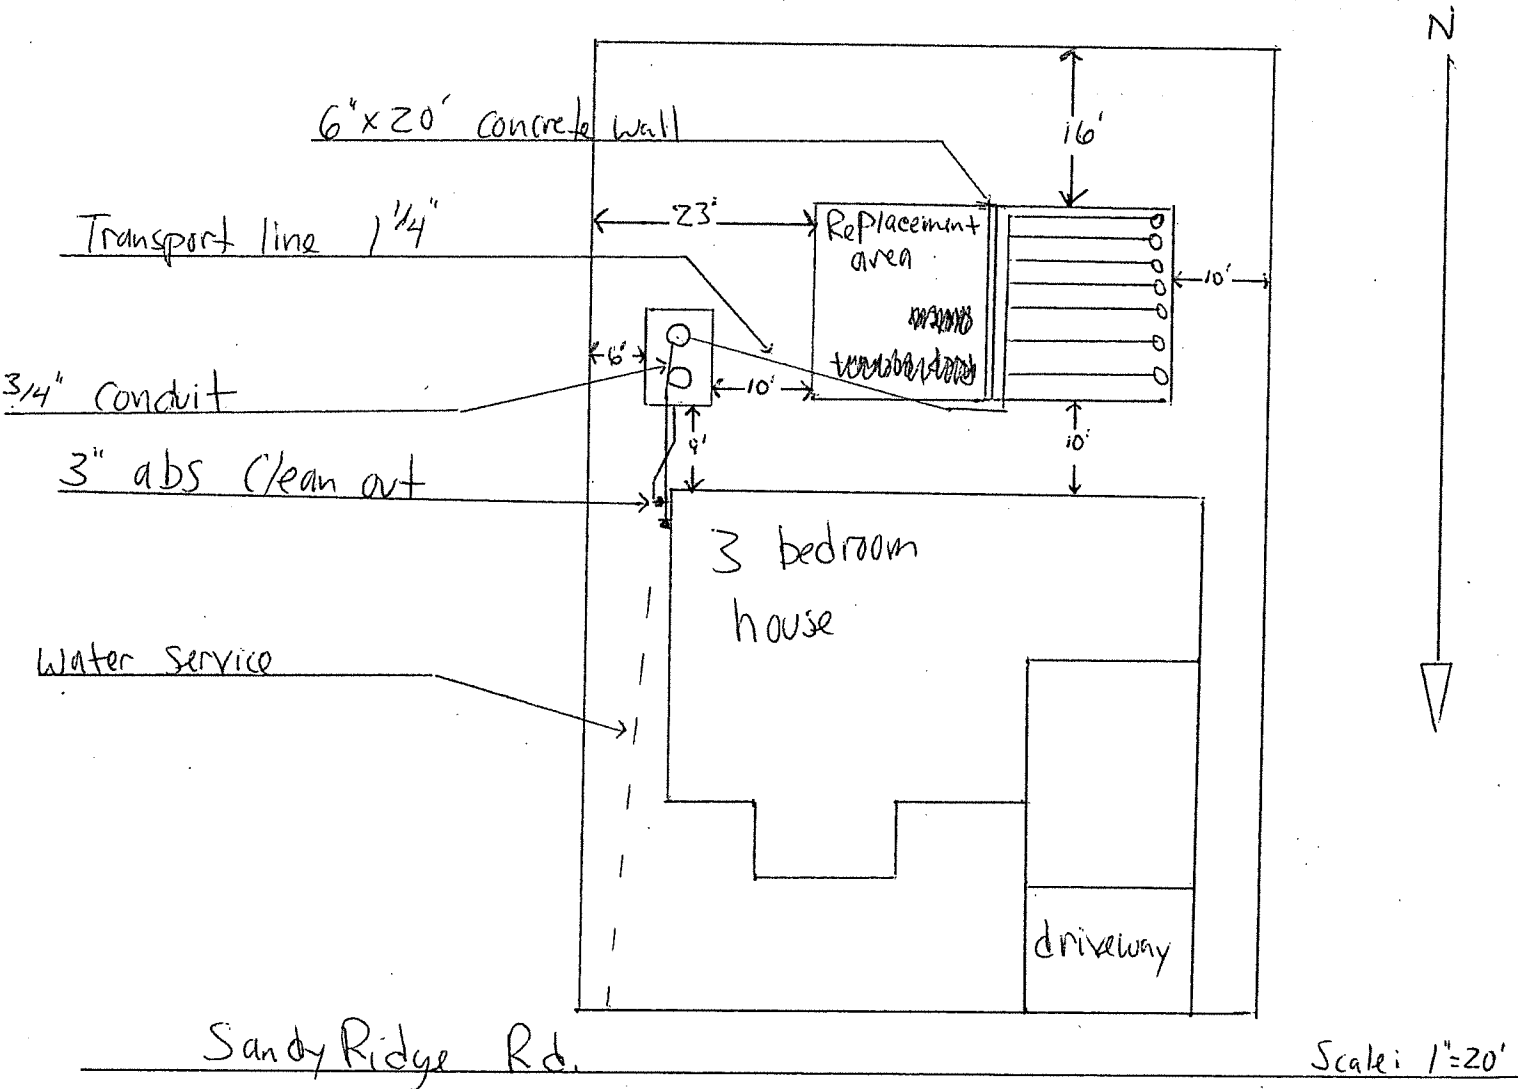 N
6"x20' concrete wall
16'
Transport line 1 1/4"
23'
Replacement
area
10'
6'
10'
3/4" conduit
9'
10'
3" abs Clean out
3 bedroom
house
Water service
driveway
Sandy Ridge Rd.
Scale: 1"=20'